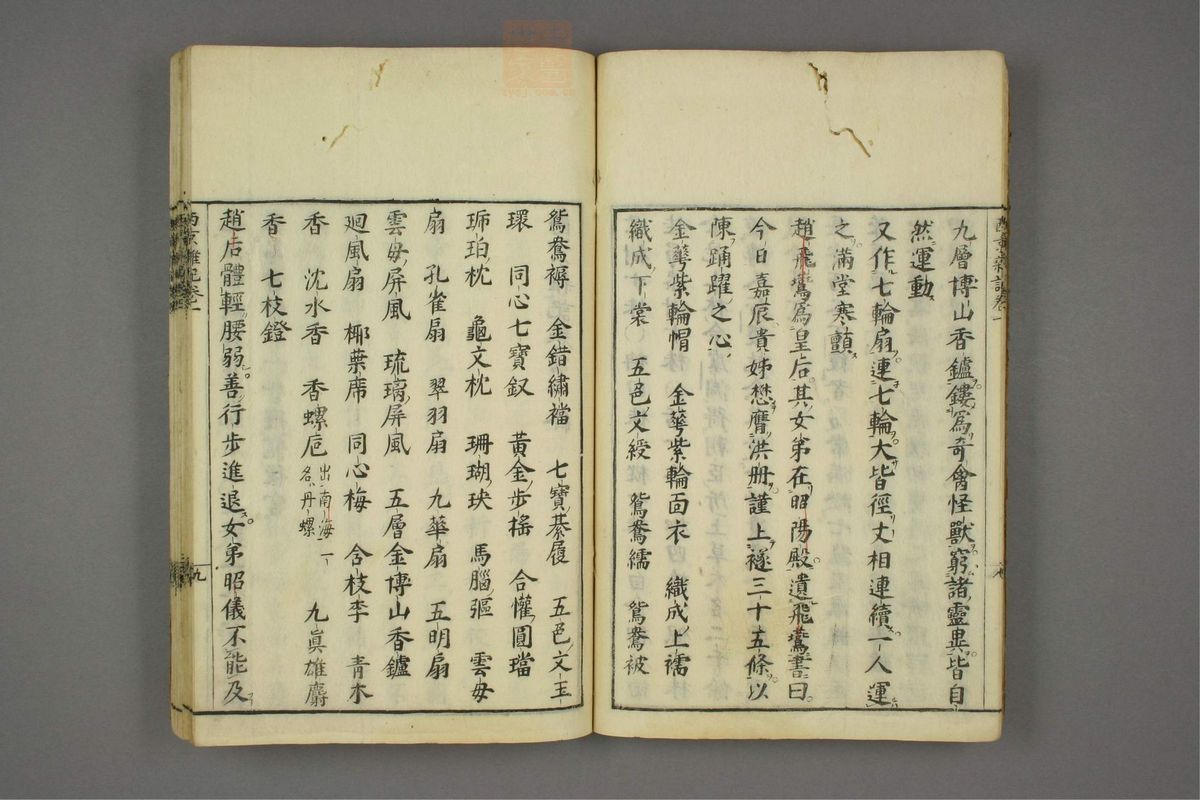 九層博山香鑪鏤爲奇禽怪獸窮諸靈異皆自
然運動
又作七輪扇連七輪大皆徑丈相連續一人運
之滿堂寒顫
趙飛鷰爲皇后其女弟在昭陽殿遺飛鷰書曰
今日嘉辰貴姊懋膺洪册謹上襚三十五條以
陳踊躍之心
金華紫輪帽　金華紫輪面衣　織成上襦
織成下裳　五色文綬　鴛鴦襦　鴛鴦被
鴛鴦褥　金錯繡襠　七寶綦履　五色文玉
環　同心七寶釵　黃金步搖　合懽圓璫
琥珀枕　龜文枕　珊瑚玦　馬腦彄　雲母
扇　孔雀扇　翠羽扇　九華扇　五明扇
雲母屏風　琉璃屏風　五層金博山香鑪
廻風扇　椰葉席　同心梅　含枝李　青木
香　沈水香　香螺巵出南海一名丹螺　九眞雄麝
香　七枝鐙
趙后體輕腰弱善行步進退女弟昭儀不能及
西京雜記卷一
九